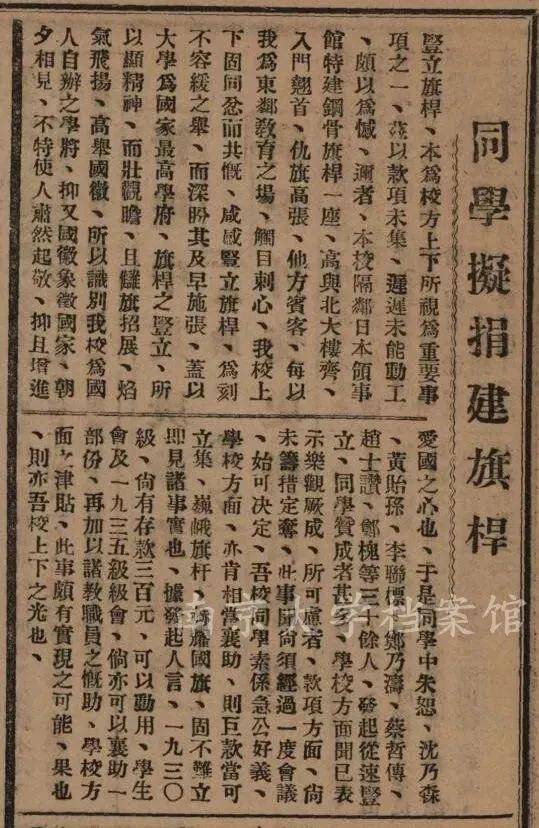 同學擬捐建旗桿
豎立旗桿、本爲校方上下所視爲重要事
項之一、茲以款項未集、遲遲未能動工
、頗以爲憾、邇者、本校隔鄰日本領事
館特建鋼骨旗桿一座、高與北大樓齊、
入門翹首、仇旗高張、他方賓客、每以
我爲東鄰敎育之場、觸目刺心、我校上
下固同忿而共慨、咸感豎立旗桿、爲刻
不容緩之舉、而深盼其及早施張、蓋以
大學爲國家最高學府、旗桿之豎立、所
以顯精神、而壯觀瞻、且讎旗招展、焰
氣飛揚、高舉國徽、所以識別我校爲國
人自辦之學將、抑又國徽象徵國家、朝
夕相見、不特使人肅然起敬、抑且增進
愛國之心也、于是同學中朱恕、沈乃森
、黃貽孫、李聯標、鄭乃濤、蔡哲傳、
趙士讚、鄭槐等三十餘人、發起從速豎
立、同學贊成者甚多、學校方面聞已表
示樂觀厥成、所可慮者、款項方面、尙
未籌措定奪、此事聞尙須經過一度會議
、始可決定、吾校同學素係急公好義、
學校方面、亦肯相當襄助、則巨款當可
立集、巍峨旗杆、輝耀國旗、固不難立
即見諸事實也、據發起人言、一九三〇
級、尙有存款三百元、可以動用、學生
會及一九三五級級會、倘亦可以襄助一
部份、再加以諸敎職員之慨助、學校方
面之津貼、此事頗有實現之可能、果也
、則亦吾校上下之光也、
南京大学档案馆